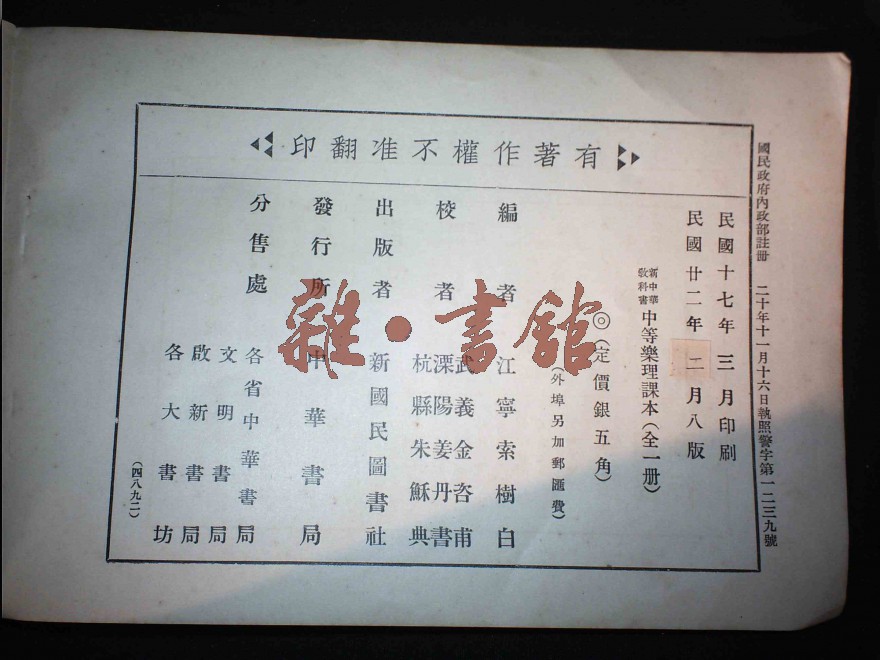 國民政府內政部註冊 二十年十一月十六日執照警字第一二三九號
有著作權不准翻印
民國十七年三月印刷
民國廿二年二月八版
新中華教科書 中等樂理課本(全一册)
◎(定價銀五角)
(外埠另加郵匯費)
編者 江寧索樹白
校者 武義金咨甫
溧陽姜丹書
杭縣朱穌典
出版者 新國民圖書社
發行所 中華書局
分售處 各省中華書局
文明書局
啟新書局
各大書坊
(四八九二)
雜·書館